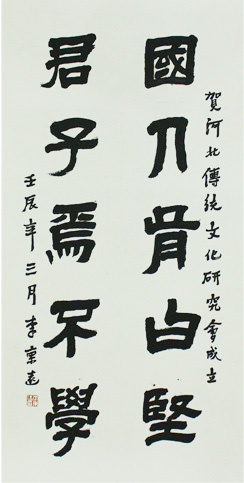 賀河北傳統文化研究會成立
國肯堅
君子焉不學
壬辰年三月李